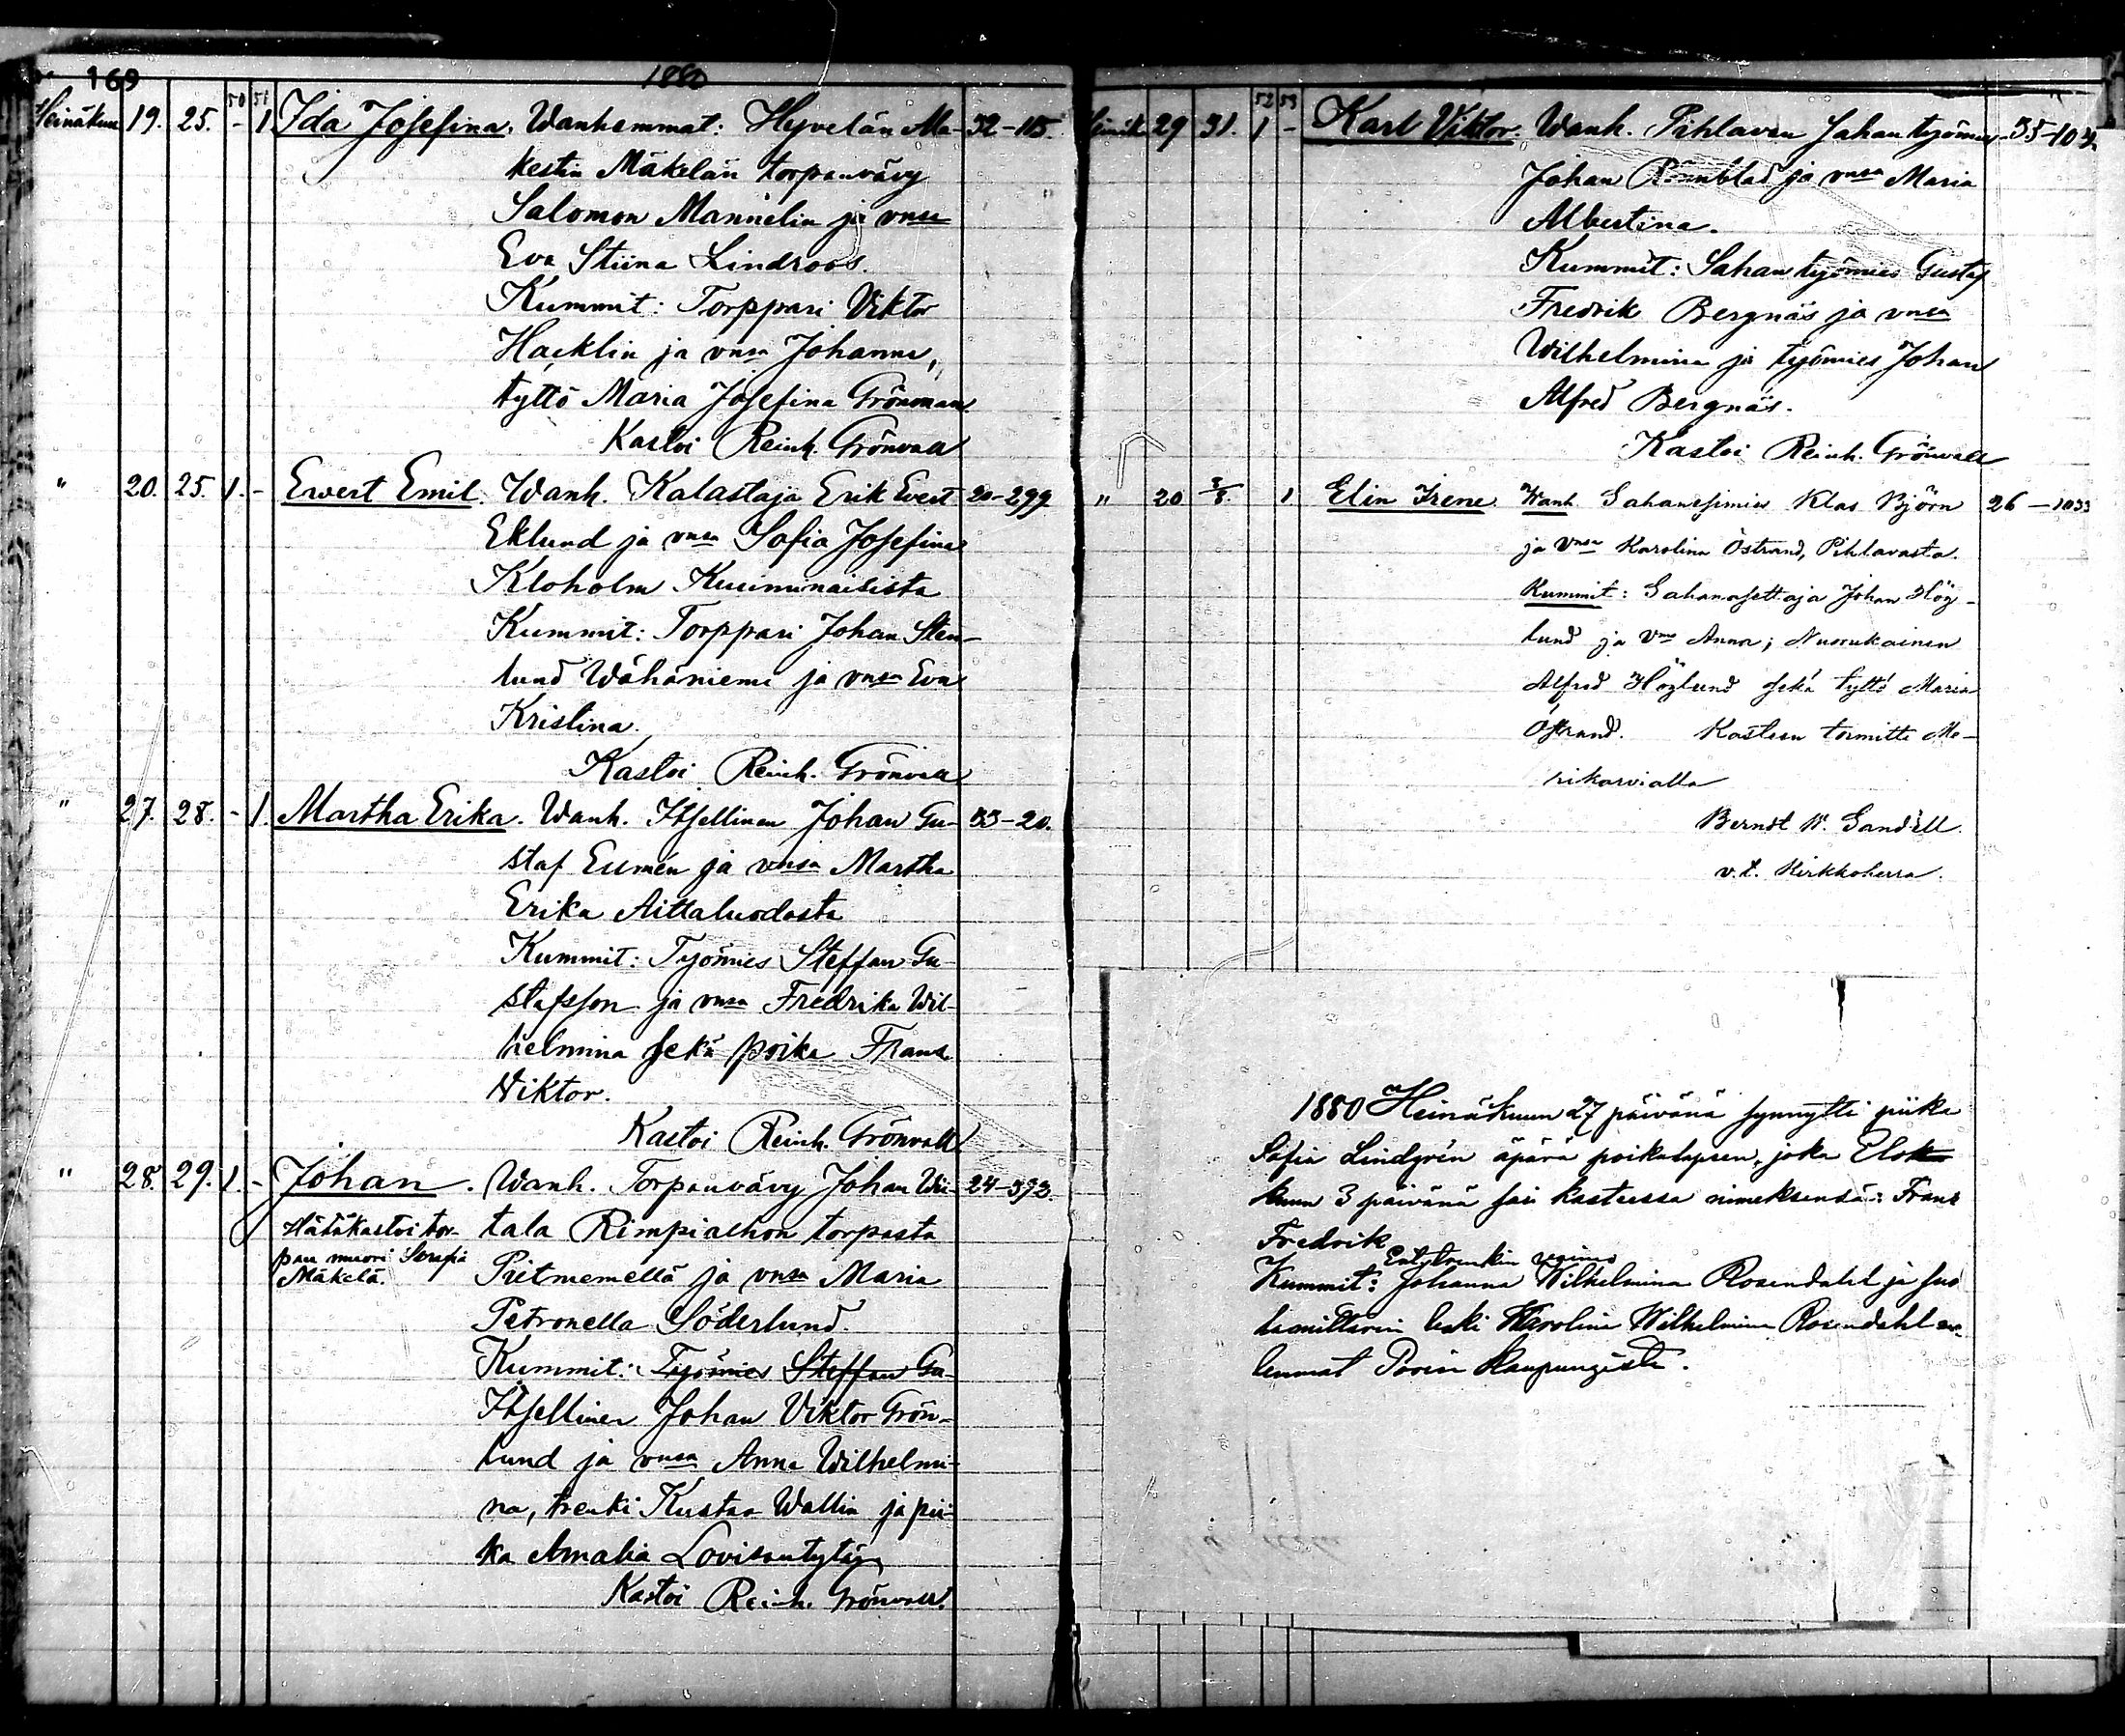 169
1880
Heinäkuu 19. 25. 50 - 51 1 Ida Josefina. Wanhemmat: Hyvelän Ma- 32-115.
kestin Mäkelän torpanvävy
Salomon Mannelin ja vnsa
Eva Stiina Lindroos.
Kummit: Torppari Viktor
Hacklin ja vnsa Johanna,
tyttö Maria Josefina Grönman.
Kastoi Reinh. Grönvall
" 20. 25. 1. - Ewert Emil. Wanh. Kalastaja Erik Evert 20-299.
Eklund ja vnsa Sofia Josefina
Kloholm Kuuminaisista
Kummit: Torppari Johan Sten-
lund Wähäniemi ja vnsa Eva
Kristina.
Kastoi Reinh. Grönvall
" 27. 28. - 1. Martha Erika. Wanh. Itsellinen Johan Gu- 53-20.
staf Eumén ja vnsa Martha
Erika Aittaluodosta
Kummit: Työmies Steffan Gu-
stafsson ja vnsa Fredrika Wil-
helmina sekä poika Frans
Viktor.
Kastoi Reinh. Grönvall
" 28. 29. 1. - Johan. Wanh. Torpanvävy Johan Wii- 24-393.
Hätäkastoi tor- tala Rimpiahon torpasta
pan muori Serafia
Mäkelä. Piitmemellä ja vnsa Maria
Petronella Söderlund.
Kummit: Työmies Steffan Gu-
Itsellinen Johan Viktor Grön-
lund ja vnsa Anna Wilhelmi-
na, trenki Kustaa Wallin ja pii-
ka Amalia Lovisantytär
Kastoi Reinh. Grönvall.
Heinäk 29 31. 52 1 53 - Karl Viktor. Wanh. Pihlavan Sahan työmies 55-103
Johan Rönnblad ja vnsa Maria
Albertina.
Kummit: Sahan työmies Gustaf
Fredrik Bergnäs ja vnsa
Wilhelmina ja työmies Johan
Alfred Bergnäs.
Kastoi Reinh. Grönvall
" 20 3/8. 1. Elin Irene. Wanh Klas Björn 26-1033
ja vnsa Karolina Östrand, Pihlavasta.
Kummit: Sahanasettaja Johan Hög-
lund ja vms Anna; Nuorukainen
Alfred Höglund sekä tyttö Maria
Östrand. Kasteen toimitti Me-
rikarvialla
Berndt W. Sandell.
v.t. Kirkkoherra.
1880 Heinäkuun 27 päivänä synnytti piika
Sofia Lindgrén äpärä poikalapsen, joka Elok
kuun 3 päivänä sai kasteessa nimeksensä: Frans
Fredrik
Kummit: Johanna Wilhelmina Rosendahl ja suo
lamittarin leski Karolina Wilhelmina Rosendahl mo-
lemmat Porin Kaupungista.